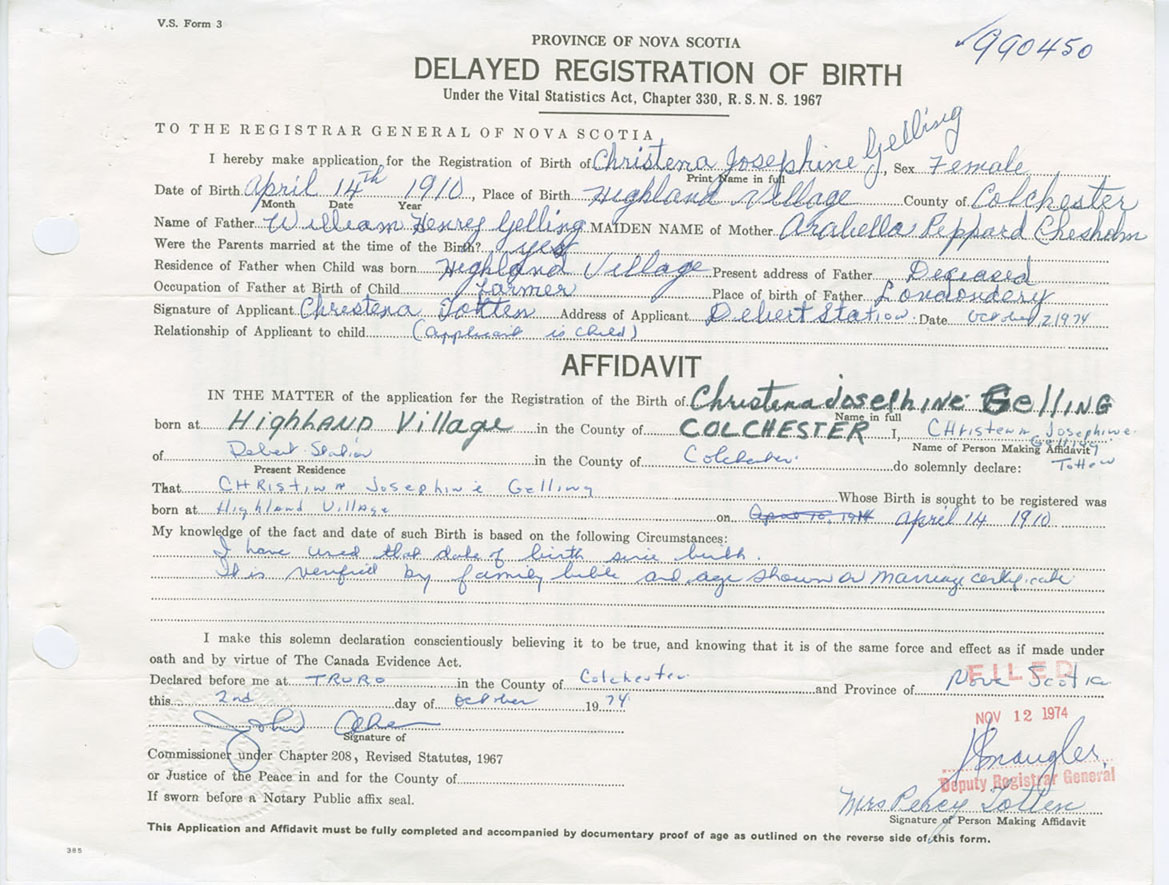 V.S. Form 3
✓990450
PROVINCE OF NOVA SCOTIA
DELAYED REGISTRATION OF BIRTH
Under the Vital Statistics Act, Chapter 330, R.S.N.S. 1967
TO THE REGISTRAR GENERAL OF NOVA SCOTIA
I hereby make application for the Registration of Birth of Christena Josephine Gelling, Sex Female
Print Name in full
Date of Birth April 14th 1910, Place of Birth Highland Village County of Colchester
Month Date Year
Name of Father William Henry Gelling MAIDEN NAME of Mother Arabella Peppard Chesholm
Were the Parents married at the time of the Birth? yes
Residence of Father when Child was born Highland Village Present address of Father Deceased
Occupation of Father at Birth of Child Farmer Place of birth of Father Londondery
Signature of Applicant Christena Totten Address of Applicant Debert Station Date October 2, 1974
Relationship of Applicant to child (applicant is child)
AFFIDAVIT
IN THE MATTER of the application for the Registration of the Birth of Christena Josephine Gelling
Name in full
born at Highland Village in the County of COLCHESTER I, Christena Josephine Gelling Totten
Name of Person Making Affidavit
of Debert Station in the County of Colchester do solemnly declare:
Present Residence
That CHRistina Josephine Gelling Whose Birth is sought to be registered was
born at Highland Village on April 14 1910
My knowledge of the fact and date of such Birth is based on the following Circumstances:
I have used that date of birth since birth.
It is verified by family bible and age shown on marriage certificate
I make this solemn declaration conscientiously believing it to be true, and knowing that it is of the same force and effect as if made under
oath and by virtue of The Canada Evidence Act.
Declared before me at TRURO in the County of Colchester and Province of Nova Scotia
FILED
this 2nd day of October 1974
NOV 12 1974
John
Signature of
Commissioner under Chapter 208, Revised Statutes, 1967
or Justice of the Peace in and for the County of
Deputy Registrar General
If sworn before a Notary Public affix seal.
Mrs Percy Totten
Signature of Person Making Affidavit
This Application and Affidavit must be fully completed and accompanied by documentary proof of age as outlined on the reverse side of this form.
385